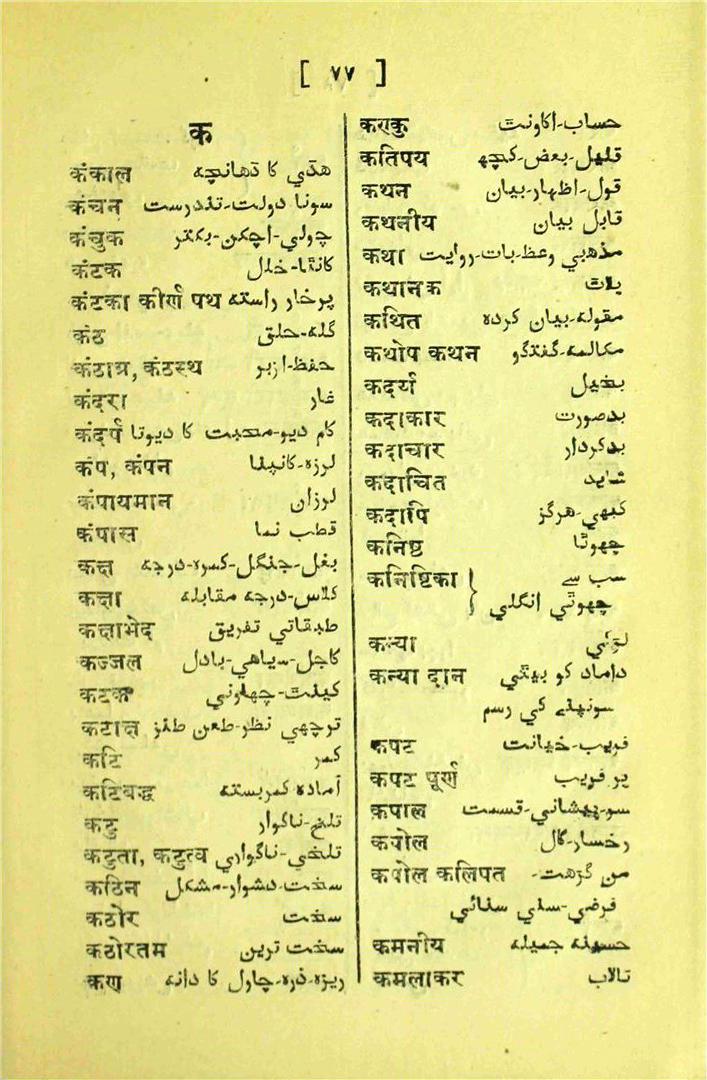 [ ۷۷ ]
क
कंकाल ھڈي کا ڈھانچہ
कंचन سونا دولت-تندرست
कंचुक چولي-اچکن-بکتر
कंटक کانٹا-خلل
कंटका कीर्ण पथ پرخار راستہ
कंठ گلہ-حلق
कंठाग्र, कंठस्थ حفظ-ازبر
कंदरा غار
कंदर्प کام دیو-محبت کا دیوتا
कंप, कंपन لرزہ-کانپنا
कंपायमान لرزاں
कंपास قطب نما
कक्ष بغل-جنگل-کمرہ-درجہ
कक्षा کلاس-درجہ مقابلہ
कक्षाभेद طبقاتي تفریق
कज्जल کاجل-سیاھي-بادل
कटक کیمنٹ-چھاوني
कटाक्ष ترچھي نظر-طعن طنز
कटि کمر
कटिबद्ध آمادہ کمربستہ
कटु تلخ-ناگوار
कटुता, कटुत्व تلخي-ناگواري
कठिन سخت-دشوار-مشکل
कठोर سخت
कठोरतम سخت ترین
कण ریزہ-ذرہ-چاول کا دانہ
कणकु حساب-اکاونٹ
कतिपय قلیل-بعض-کچھ
कथन قول-اظہار-بیان
कथनीय قابل بیان
कथा مذھبي وعظ-بات-روایت
कथानक پلاٹ
कथित مقولہ-بیان کردہ
कथोप कथन مکالمہ-گفتگو
कदर्य بخیل
कदाकार بدصورت
कदाचार بدکردار
कदाचित شاید
कदापि کبھي-ھرگز
कनिष्ठ چھوٹا
कनिष्टिका } سب سے
چھوٹي انگلي
कन्या لڑکي
कन्या दान داماد کو بیٹي
سونپنے کي رسم
कपट فریب-خیانت
कपट पूर्ण پر فریب
कपाल سر-پیشاني-قسمت
कपोल رخسار-گال
कपोल कलिपत من گڑھت-
فرضي-سني سنائي
कमनीय حسینہ جمیلہ
कमलाकर تالاب